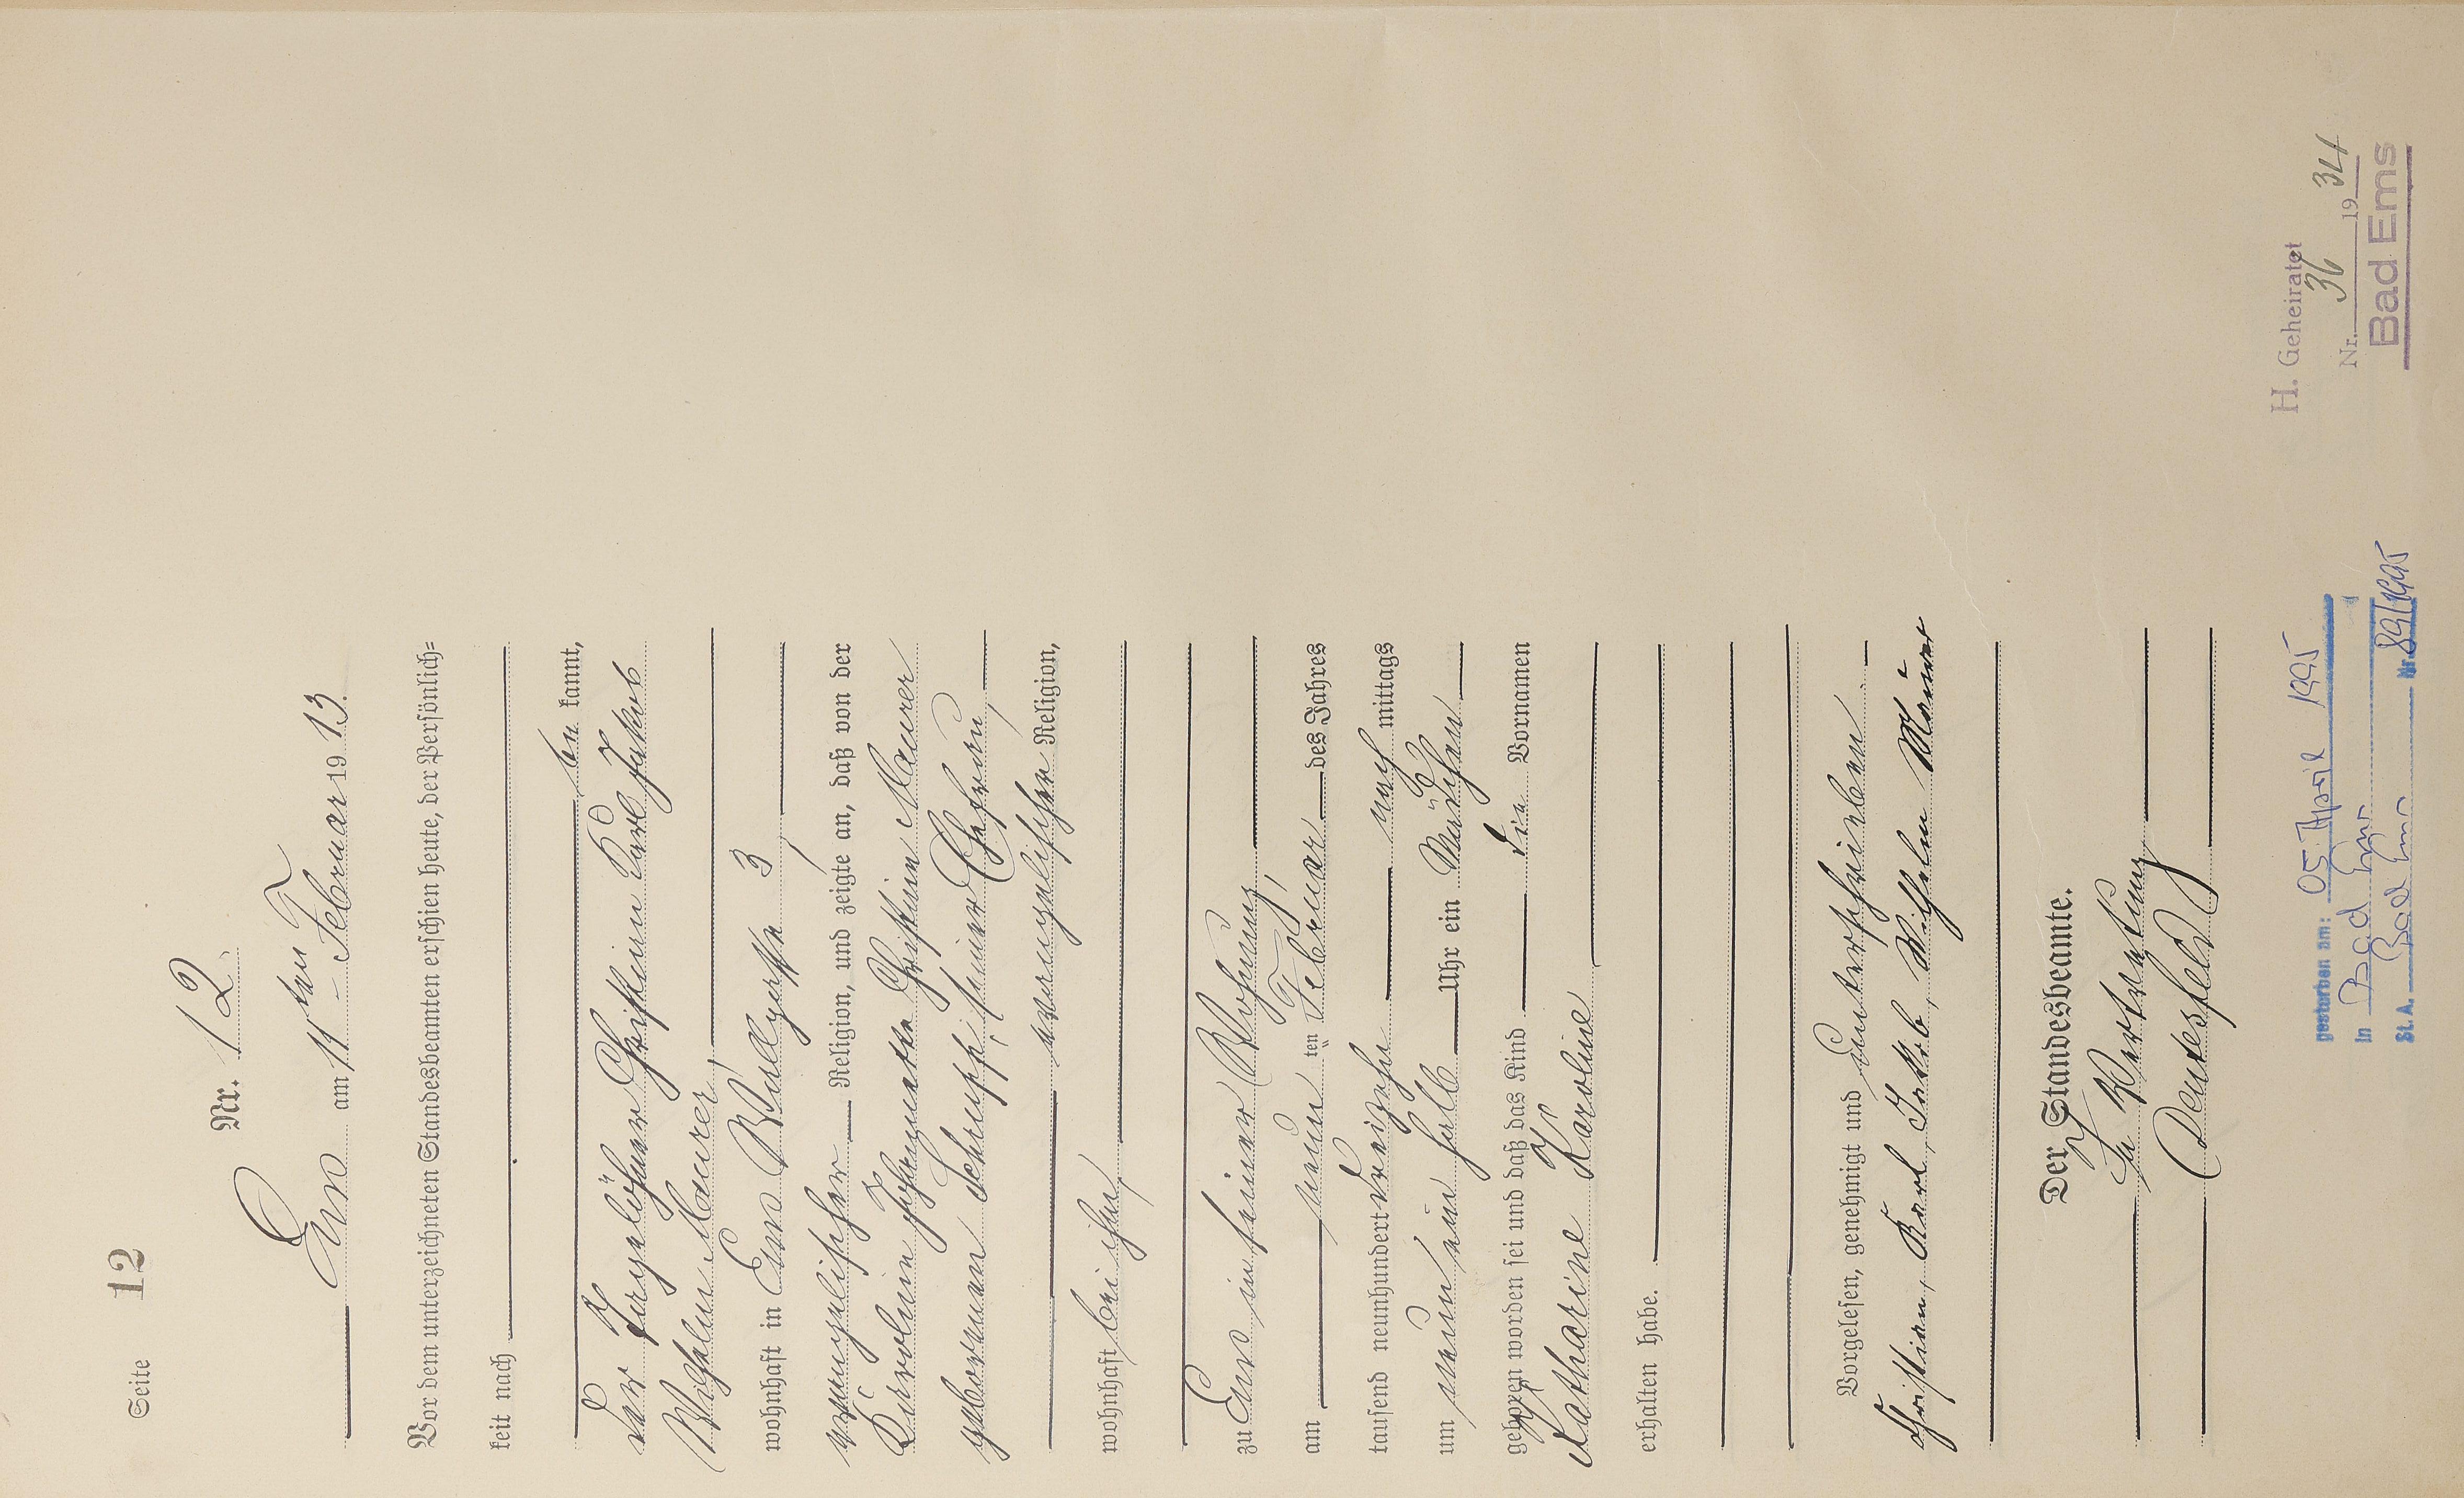 Seite 12
Nr. 12.
Ems am 11ten Februar 1913.
Vor dem unterzeichneten Standesbeamten erschien heute, der Persönlich=
keit nach
be kannt,
der Tagelöhner Christian Karl Jakob
Wilhelm Maurer,
wohnhaft in Ems Wallgasse 3,
evangelischer Religion, und zeigte an, daß von der
Karoline Johannette Christiane Maurer
geborenen Schrupp, seiner Ehefrau,
evangelischer Religion,
wohnhaft bei ihm,
zu Ems in seiner Wohnung,
am neun ten Februar des Jahres
tausend neunhundert dreizehn nach mittags
um neun ein halb Uhr ein Mädchen
geboren worden sei und daß das Kind die Vornamen
Katharine Karoline
erhalten habe.
Vorgelesen, genehmigt und unterschrieben.
Christian, Karl, Jakob, Wilhelm Maurer
Der Standesbeamte.
In Vertretung
Deutesfeld
gestorben am: 05. April 1995
in Bad Ems
St. A. Bad Ems Nr. 89/1995
H. Geheiratet
Nr. 36 1934
Bad Ems